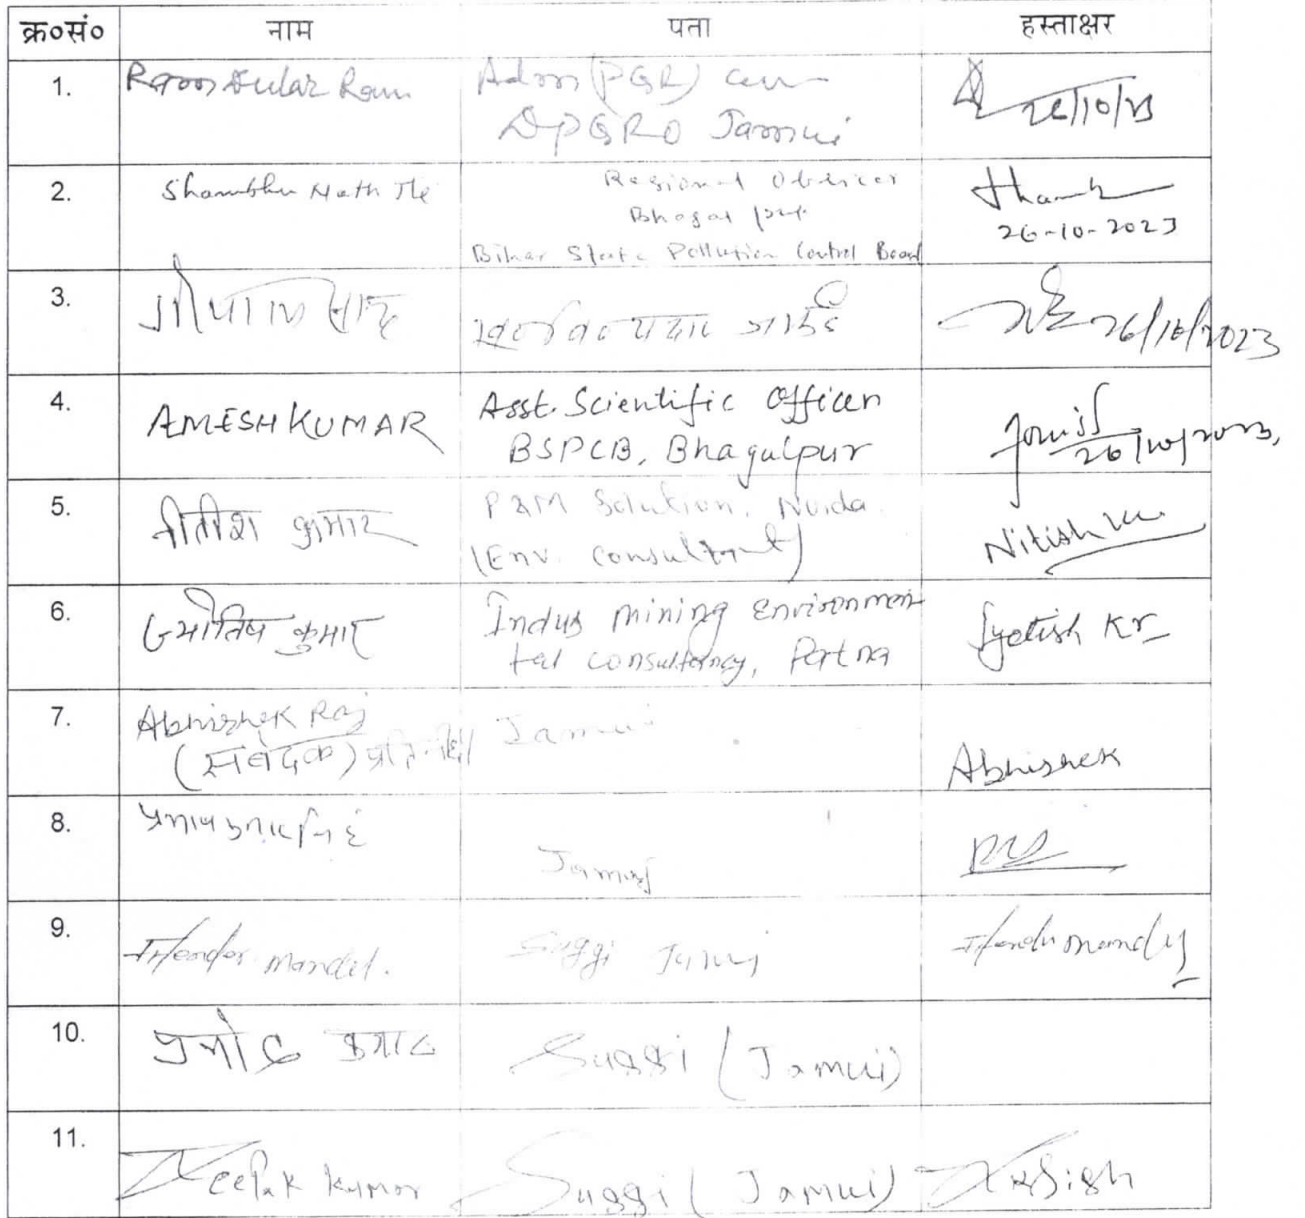 क्र०सं० नाम पता हस्ताक्षर
1. Ram Dular Ram Adm (PGR) cum
DPGRO Jamui
26/10/23
2. Shambhu Nath Jha Regional Officer
Bhagalpur
Bihar State Pollution Control Board
26-10-2023
3. गोपाल साह
26/10/2023
4. AMESH KUMAR Asst. Scientific Officer
BSPCB, Bhagalpur
26/10/2023,
5. नीतीश कुमार P&M Solution, Noida
(Env. Consultant) Nitish Kr.
6. ज्योतिष कुमार Indus Mining Environmen
tal consultancy, Patna Jyotish Kr
7. Abhishek Raj Jamui
(संवेदक) प्रतिनिधि Abhishek
8. Jamui
9. Jitendar Mandal. Suggi Jamui
10. प्रमोद कुमार Suggi (Jamui)
11. Deepak Kumar Suggi (Jamui)